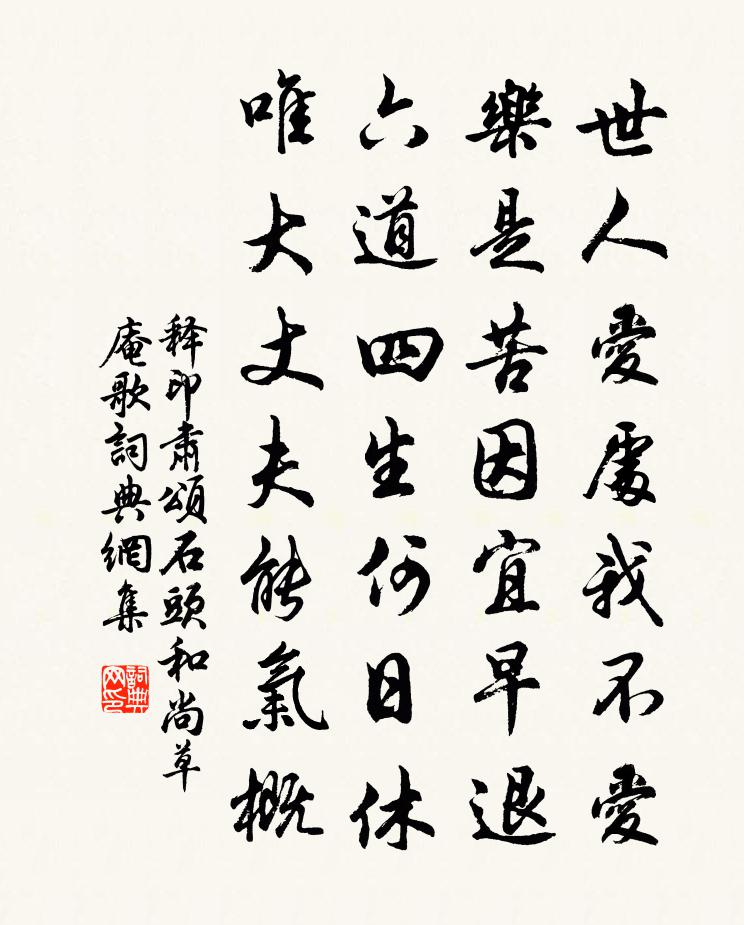 世人愛處我不愛
樂是苦因宜早退
六道四生何日休
唯大丈夫能氣概
释印肅頌石頭和尚草
庵歌詞典網集
詞典
网印